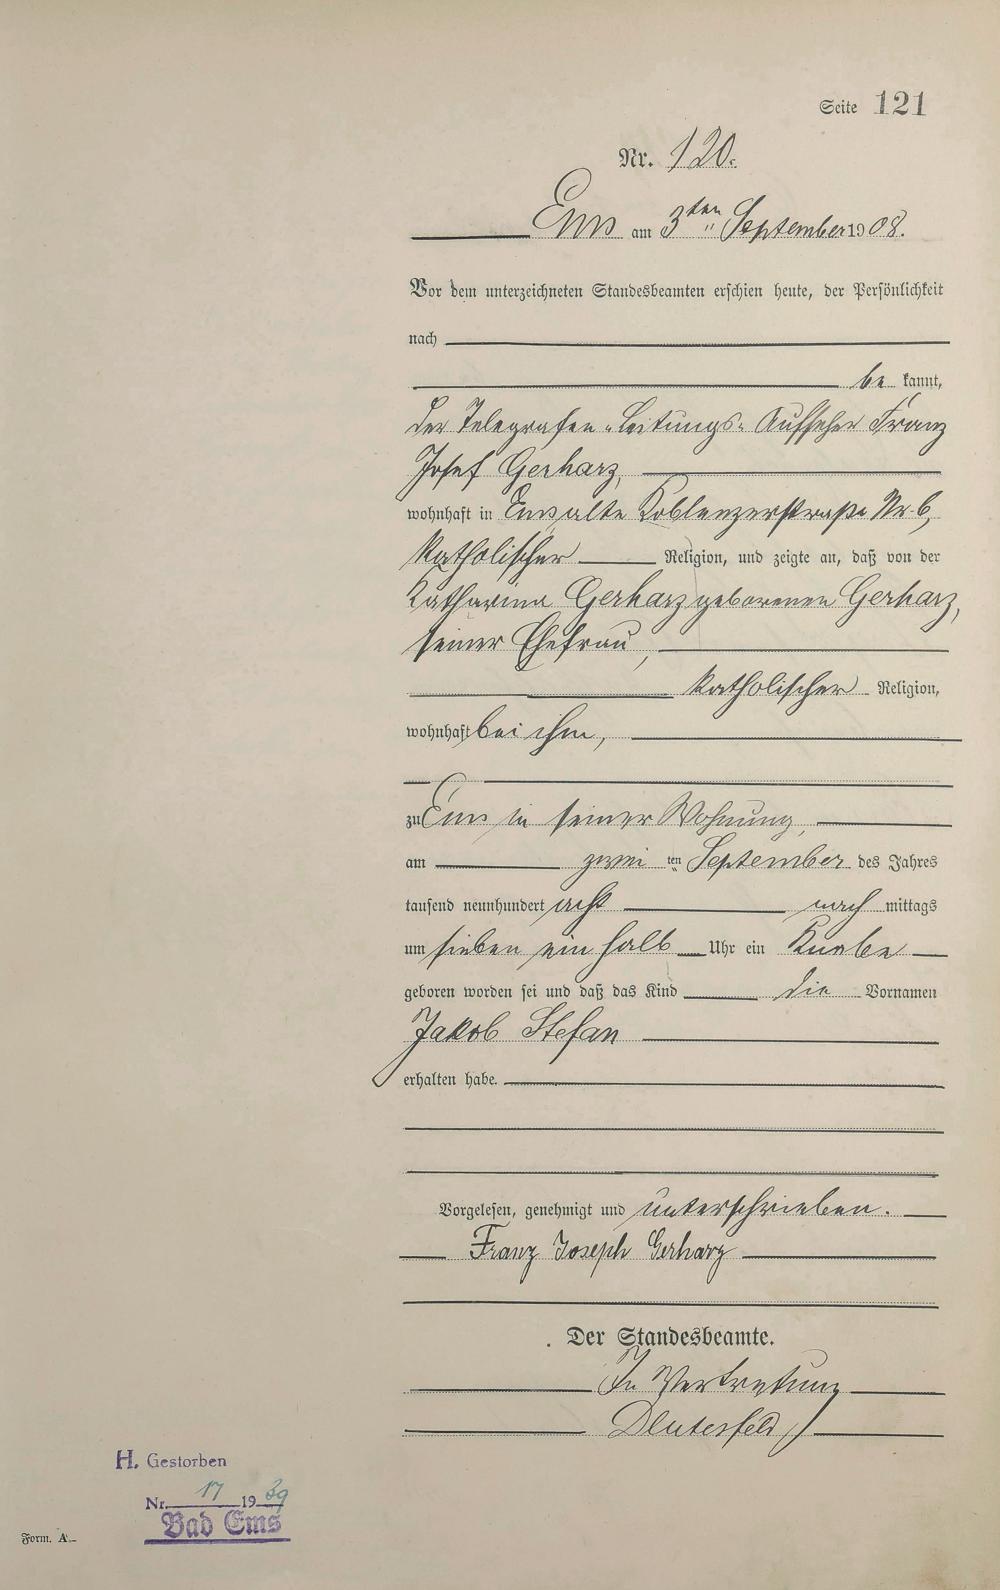 Seite 121
Nr. 120.
Ems am 3ten September 1908.
Vor dem unterzeichneten Standesbeamten erschien heute, der Persönlichkeit
nach
be kannt,
der Telegrafen-Leitungs-Aufseher Franz
Josef Gerharz,
wohnhaft in Ems alte Koblenzerstraße Nr 6,
katholischer Religion, und zeigte an, daß von der
Katharina Gerharz geborenen Gerharz,
seiner Ehefrau,
katholischer Religion,
wohnhaft bei ihm,
zu Ems in seiner Wohnung,
am zwei ten September des Jahres
tausend neunhundert acht nach mittags
um sieben ein halb Uhr ein Knabe
geboren worden sei und daß das Kind die Vornamen
Jakob Stefan
erhalten habe.
Vorgelesen, genehmigt und unterschrieben.
Franz Joseph Gerharz
Der Standesbeamte.
In Vertretung
H. Gestorben
Nr. 17 1939
Bad Ems
Form. A.